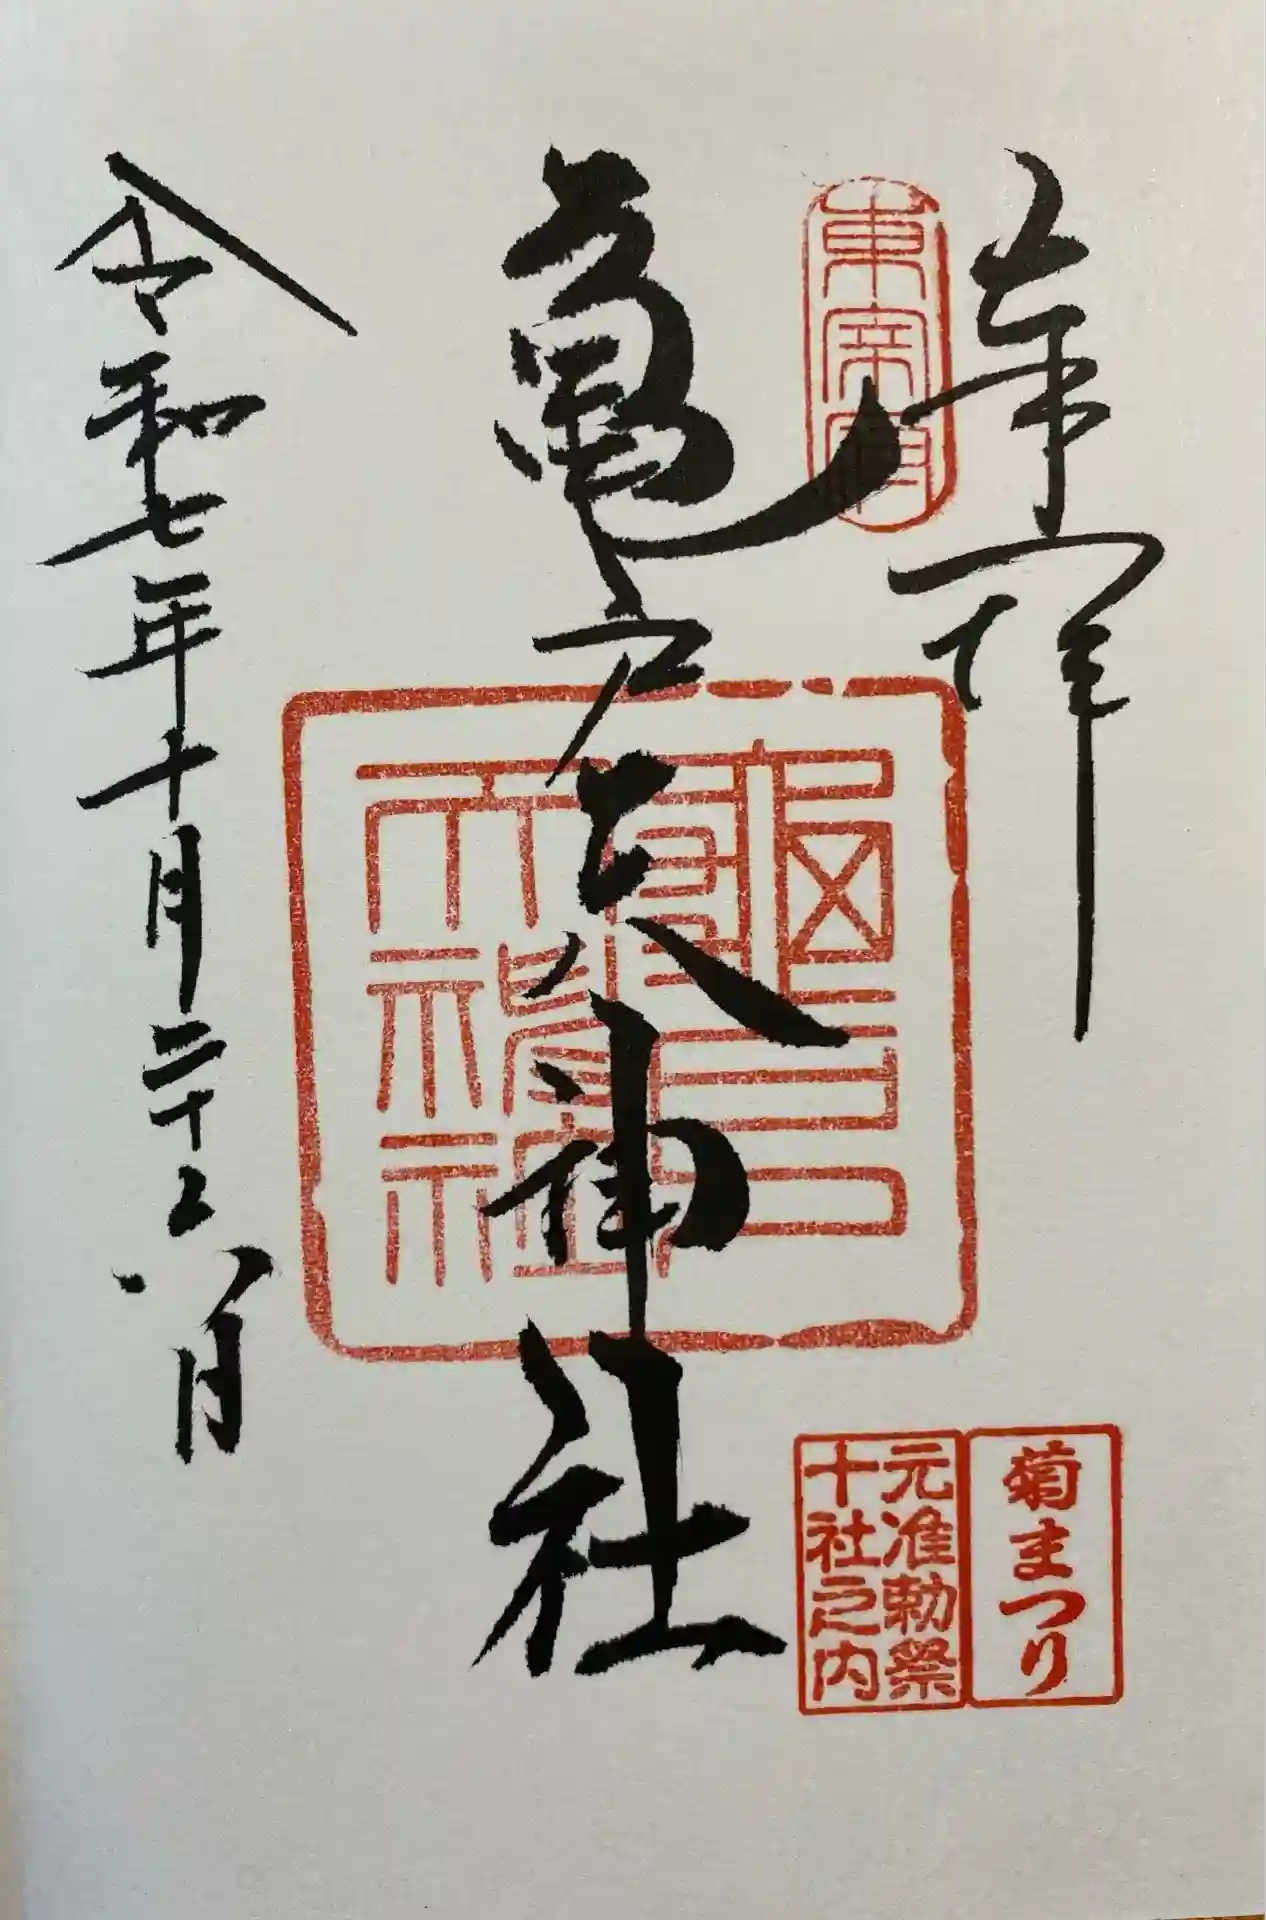 奉拝
東宰府
亀戸天神社
令和七年十月二十六日
菊まつり
元准勅祭
十社之内